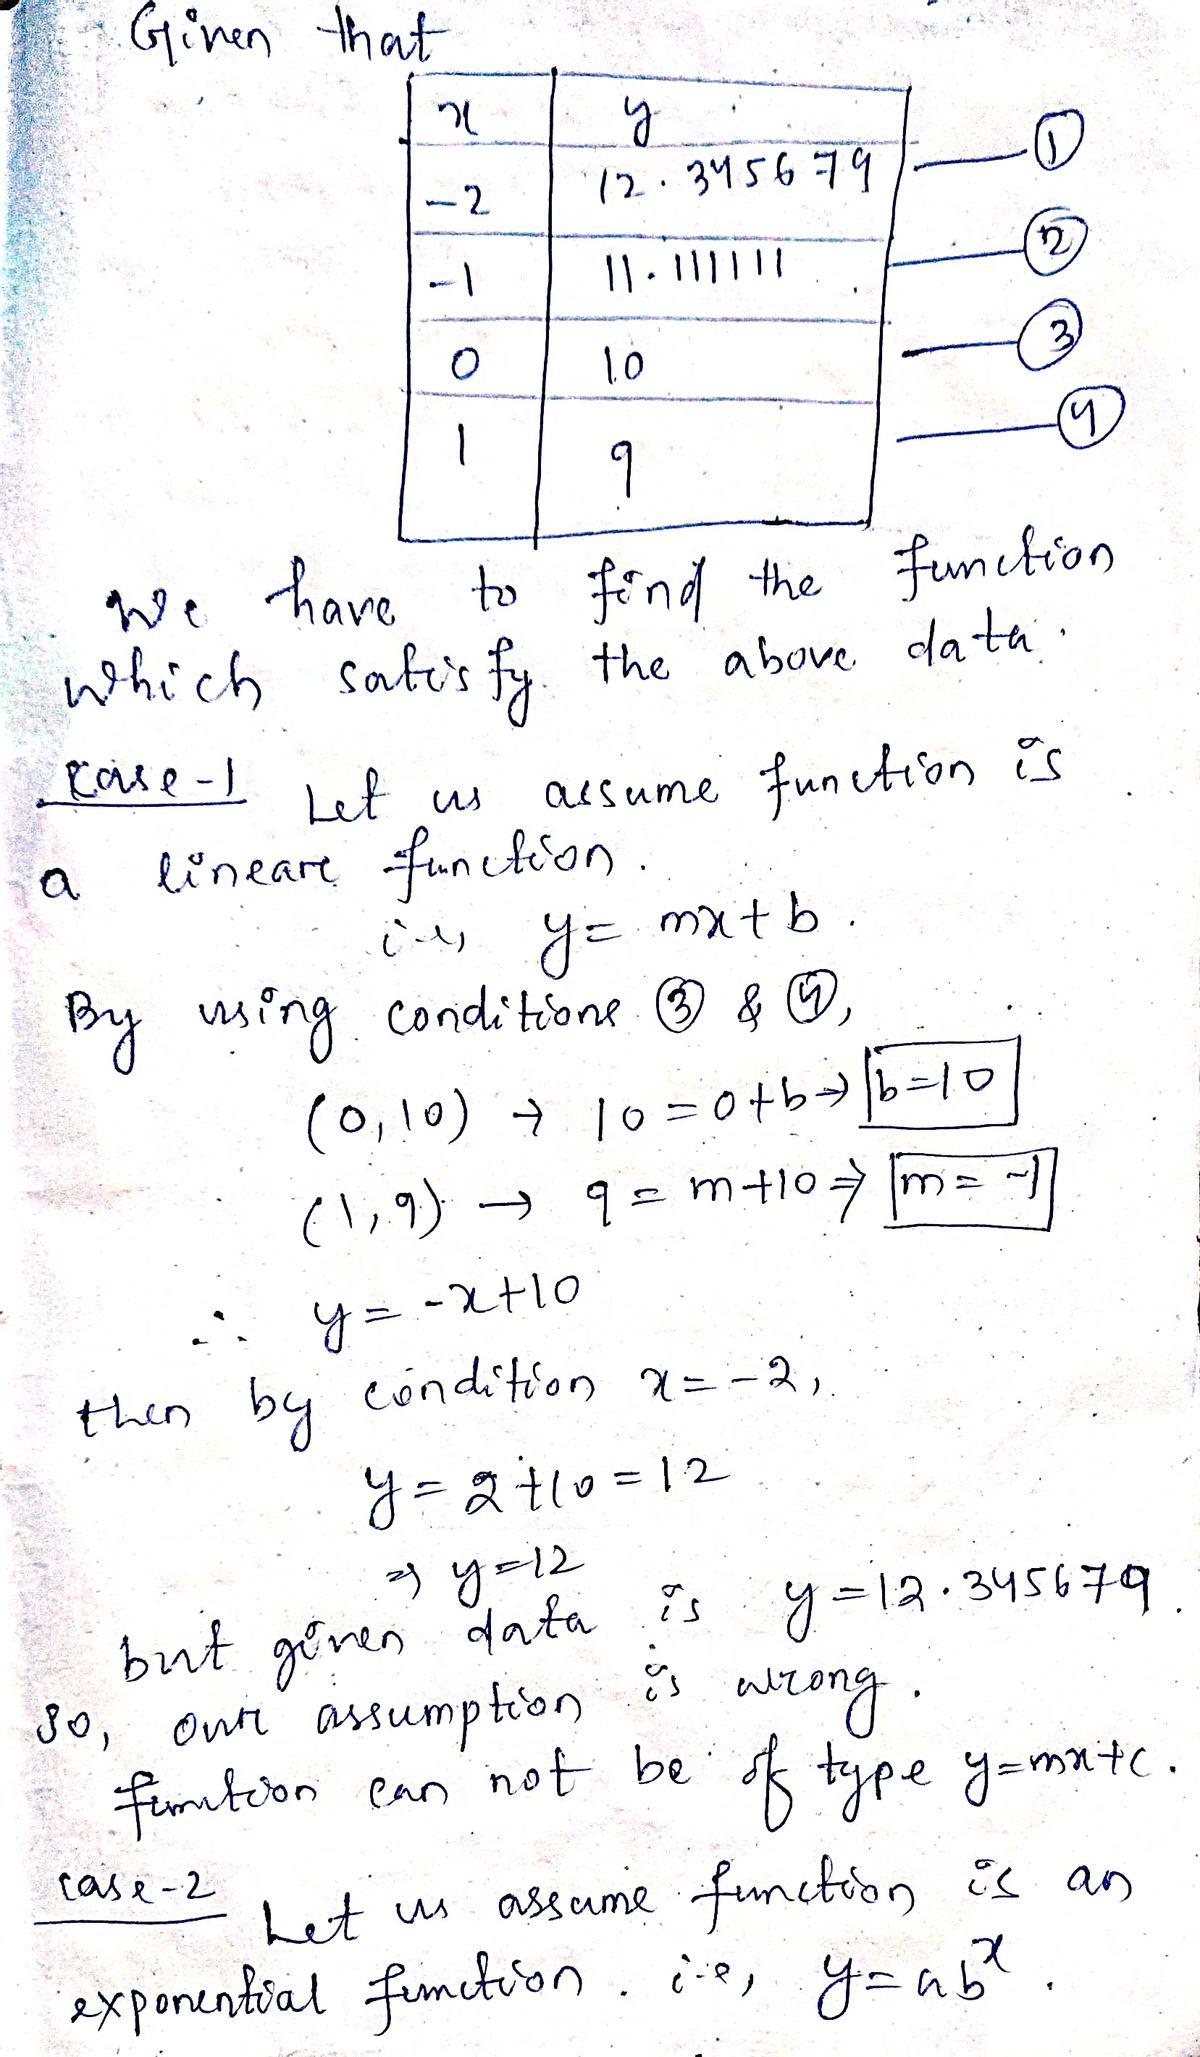 Given that
x y
-2 12.345679 ①
-1 11.111111 ②
0 10 ③
1 9 ④
We have to find the function
which satisfy the above data.
Case-1 Let us assume function is
a lineare function.
i.e, y = mx + b.
By using conditions ③ & ④,
(0, 10) → 10 = 0+b → b=10
(1, 9) → 9 = m+10 ⇒ m = -1
∴ y = -x+10
then by condition x = -2,
y = 2+10 = 12
⇒ y=12
but given data is y = 12.345679.
So, our assumption is wrong.
function can not be of type y=mx+c.
Case-2 Let us assume function is an
exponential function. i.e, y = ab^x.